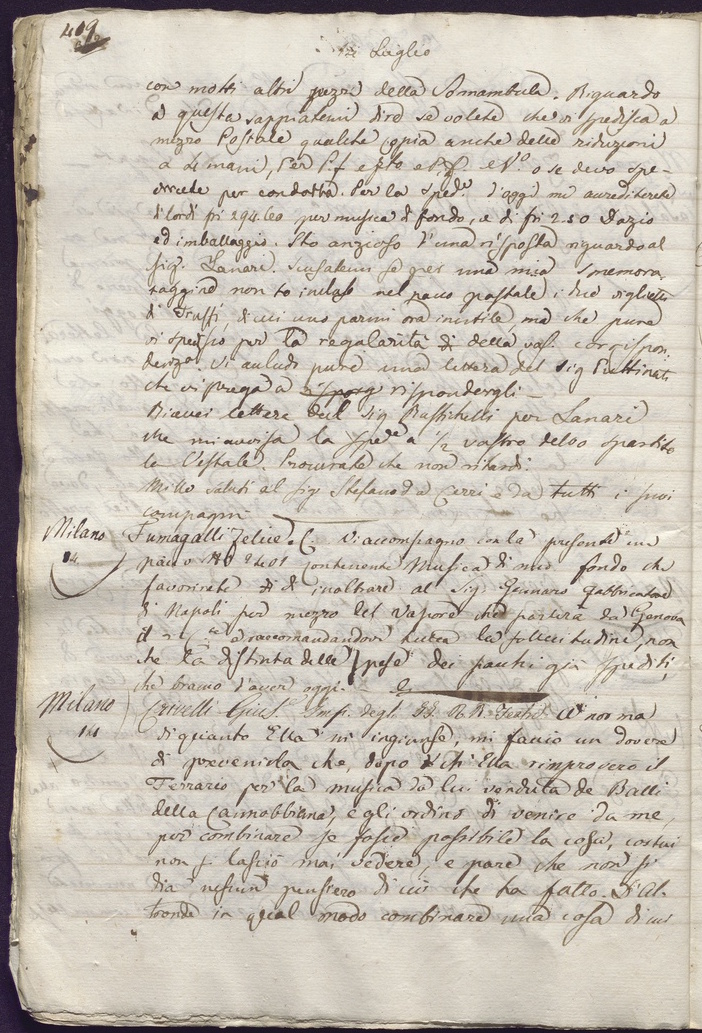 409
14 Luglio
con molti altri pezzi della Sonnambula. Riguardo
a questa sappiatemi dire se volete che vi spedisca a
mezzo Postale qualche copia anche delle riduzioni
a 4 mani, per P.f e e V.º o se devo spe-
per condotta. Per la sped.e d'oggi mi accrediterete
di lordi fri 294.60 per musica di fondo, e di fri 2.50 Dazio
ed imballaggio. Sto anzioso d'una risposta riguardo al
Sig. Lanari. Scusatemi se per una mia smemora-
taggine non to incluso nel pacco postale i due viglietti
di Truffi, di cui uno parmi ora inutile, ma che pure
vi spedisco per la regolarità di della vos. corrispon-
denza. Vi acludo pure una lettera del Sig
che vi prega a rispondergli
Ricevei lettera del Sig per Lanari
che mi avvisa la sped.e a 1/2 vostro dello spartito
la Vestale. Procurate che non ritardi.
Mille saluti al Sig Stefano da Cerri e da tutti i suoi
compagni
Milano
14
Fumagalli Felice e C. Vi accompagno con la presente un
pacco contenente Musica di mio fondo che
favorirete di d' inoltrare al Sig Gennaro Fabbricatore
di Napoli per mezzo del Vapore che partirà da Genova
il raccomandandovi tutta la sollecitudine, non
che la distinta delle spese dei pacchi già spediti,
che bramo d'aver oggi.
Milano
14
Crivelli Gius. Imp. degli II. RR. Teatri. A norma
di quanto Ella m' ingiunse, mi faccio un dovere
di prevenirla che, dopo che Ella rimproverò il
Ferrario per la musica da lui venduta de Balli
della Canobbiana, e gli ordinò di venire da me,
per combinare se fosse possibile la cosa, costui
non si lasciò mai vedere, e pare che non si
dia nessun pensiero di ciò che ha fatto. D'al-
tronde in qual modo combinare una cosa di cui